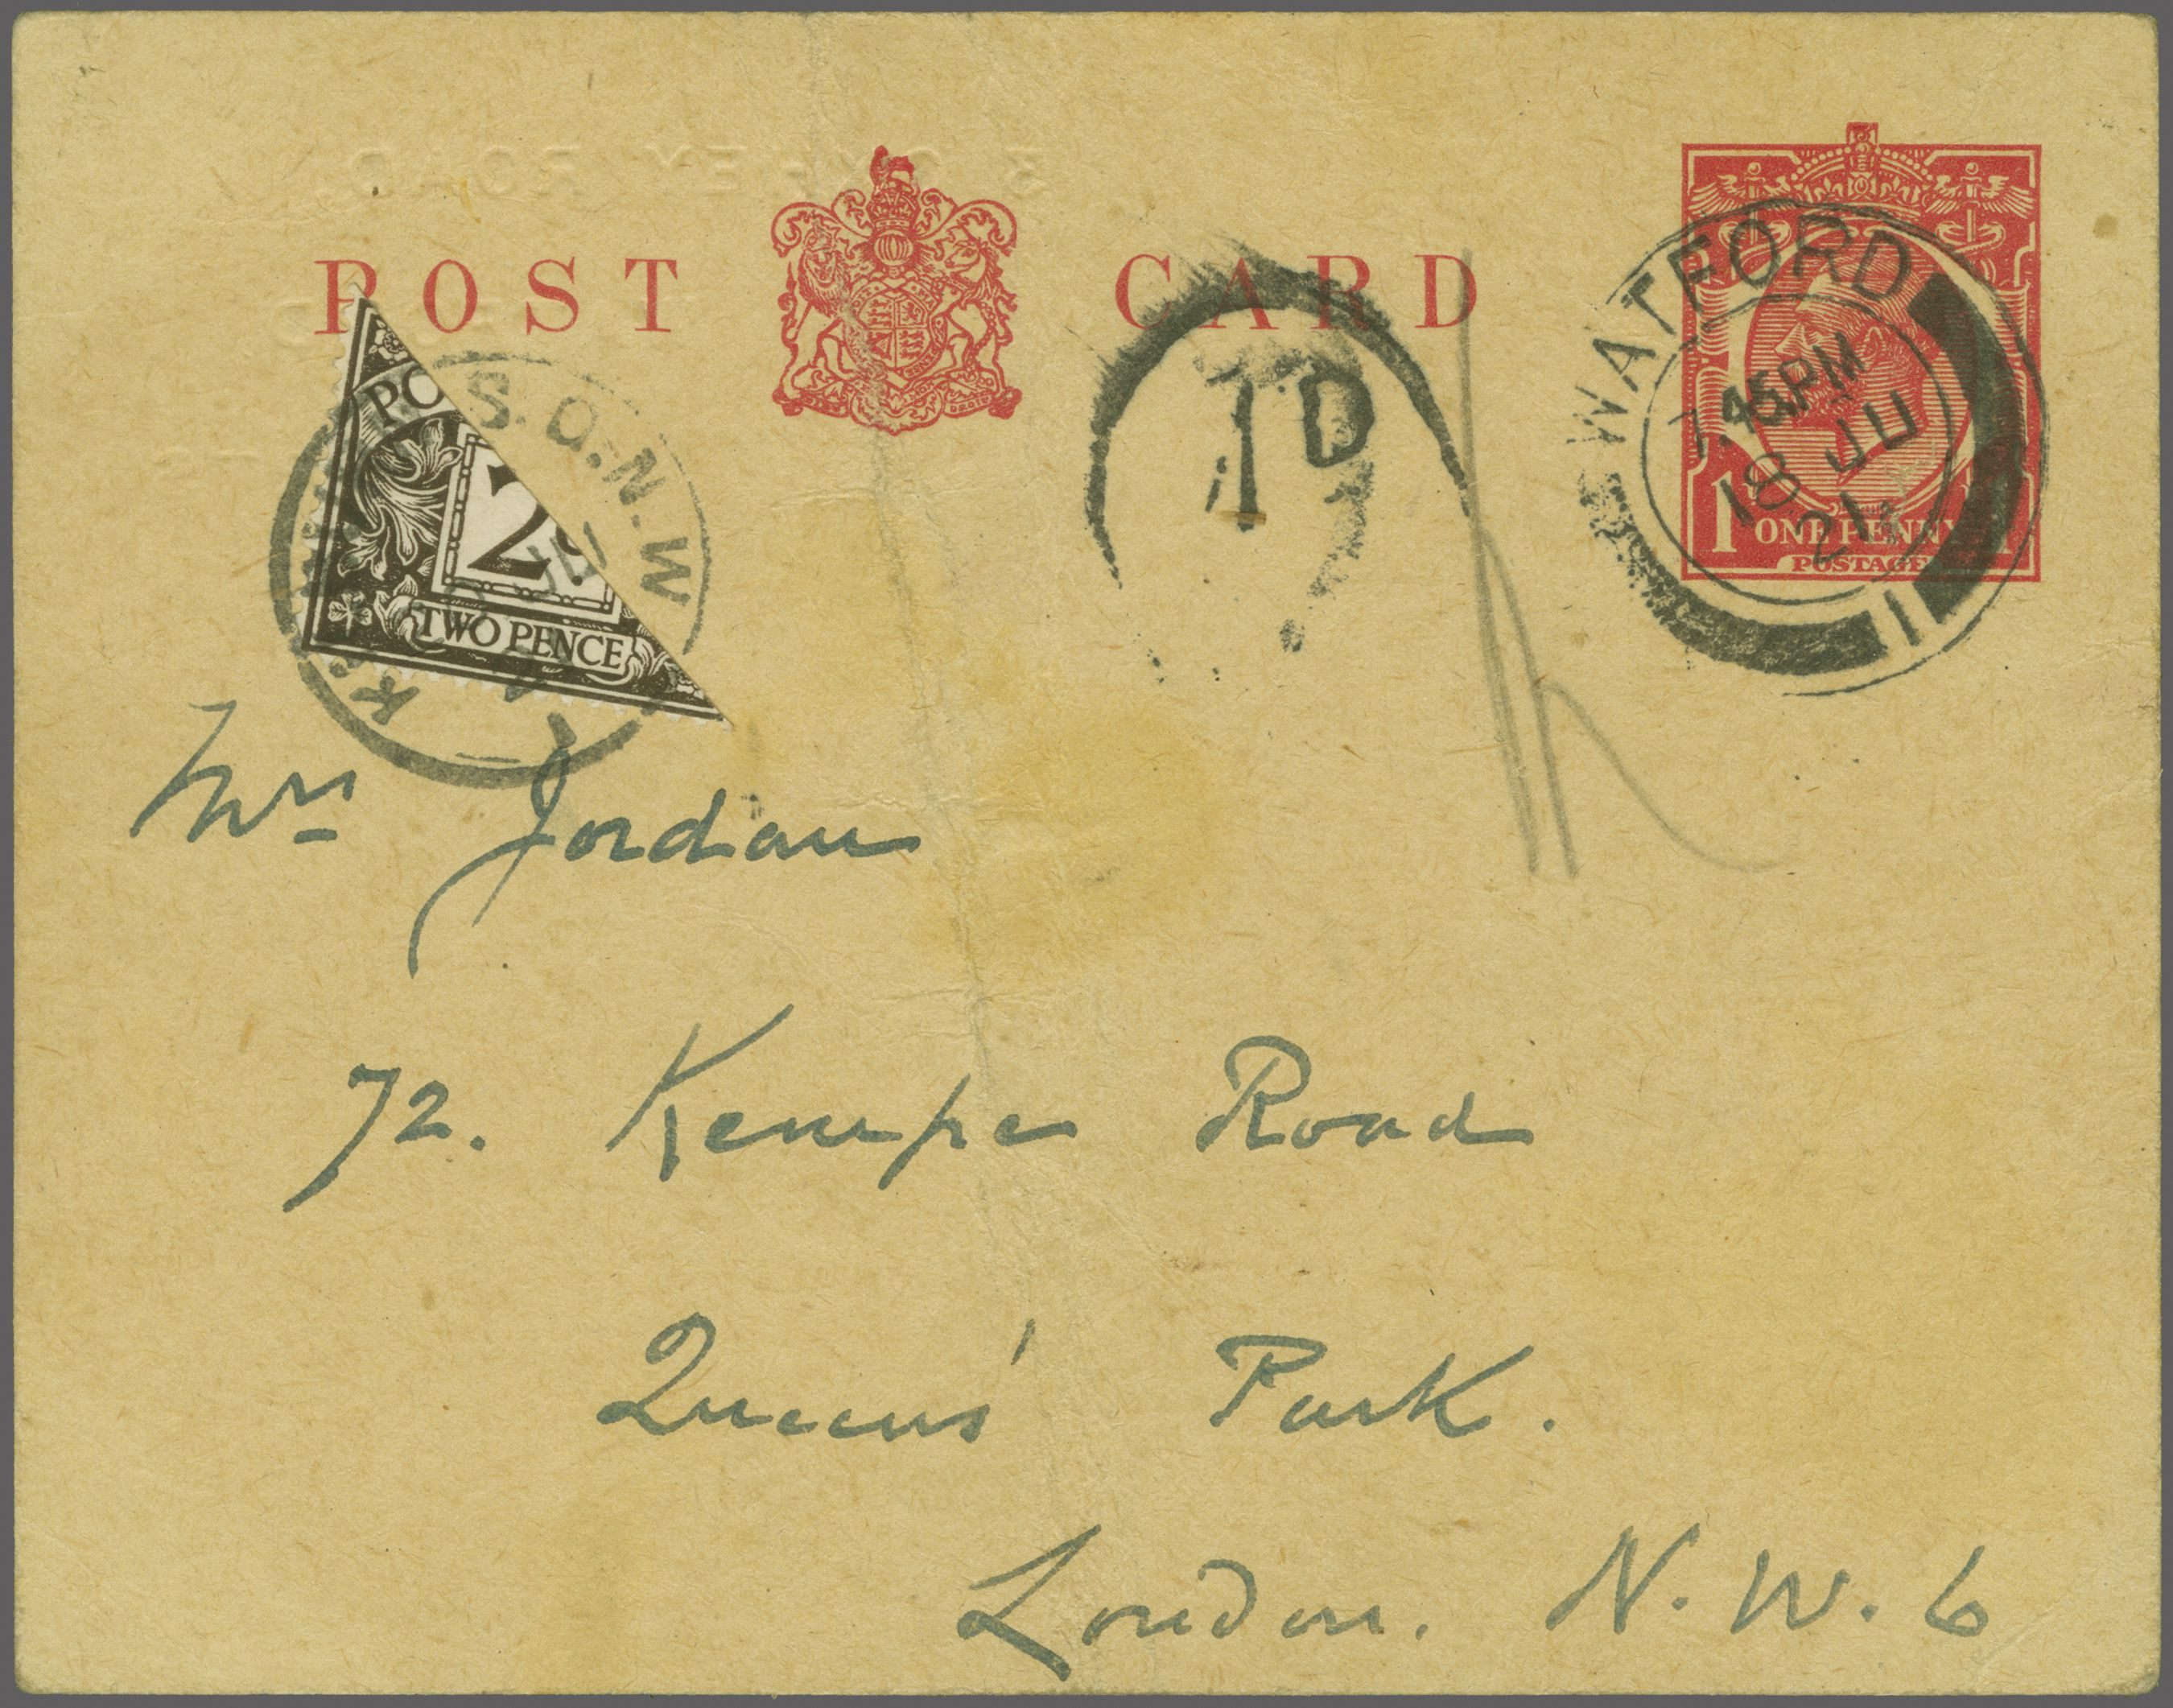 3 OXHEY ROAD,
POST CARD
PO
2
TWO PENCE
K. S.O.N.W
1D
WATFORD
7.45PM
18 JU
21
1
1 ONE PENNY
POSTAGE
Mrs Jordan
72. Kempe Road
Queens' Park.
London. N.W. 6